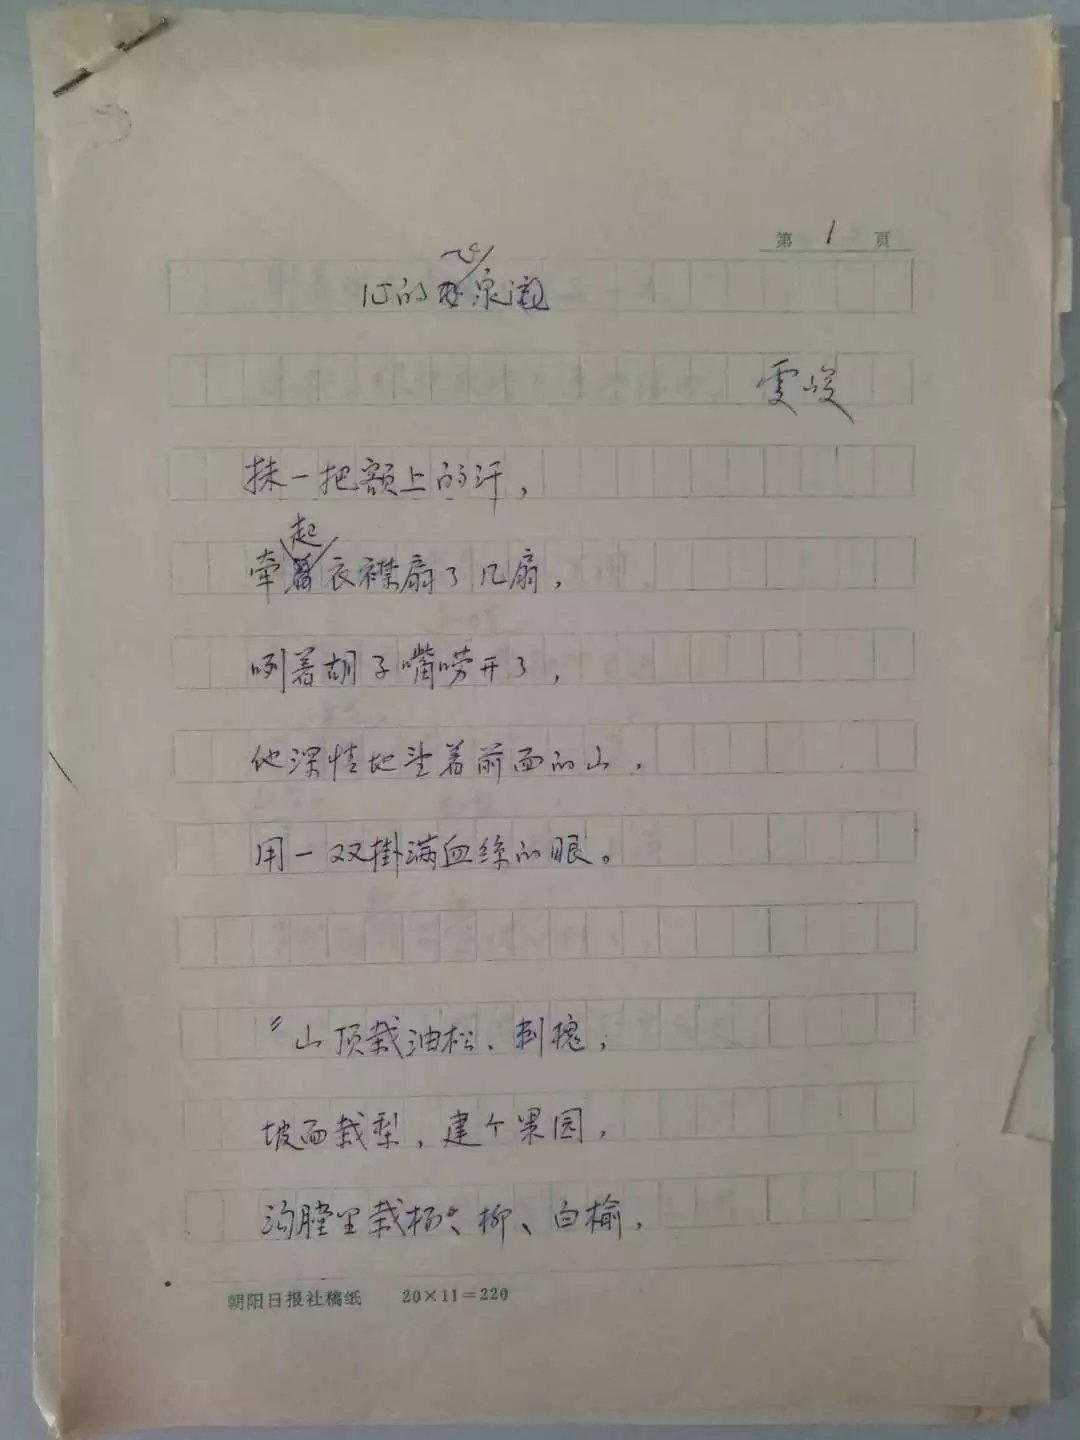 第 1 页
心的飞泉
雯峻
抹一把额上的汗，
牵起衣襟扇了几扇，
咧着胡子嘴唠开了，
他深情地望着前面的山，
用一双掛满血丝的眼。
“山顶栽油松、刺槐，
坡面栽梨，建个果园，
沟膛里栽杨、柳、白榆，
朝阳日报社稿纸 20×11=220